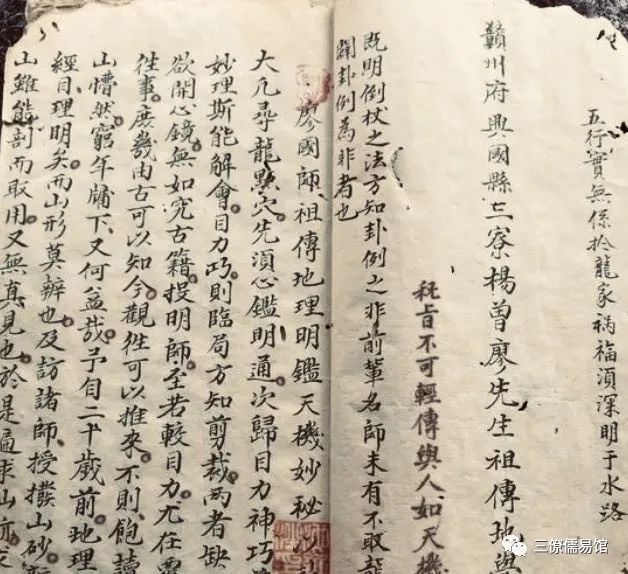 五行實無係於龍家禍福須深明于水路
贛州府興國縣三寮楊曾廖先生祖傳地與
秘旨不可輕傳與人如天機
既明倒杖之法方知卦例之非前輩名師未有不取龍
闢卦例為非者也
廖國師祖傳地理明鑑天機妙秘
大凡尋龍點穴先須心鑑明通次歸目力神巧
妙理斯能解會目力巧則臨局方知剪裁兩者缺
欲開心鏡無如究古籍投明師至若較目力尤在
徃事庶幾由古可以知今觀徃可以推來不則飽讀
山懵然窮年牖下又何益哉予自二十歲前地理
經目理明矣而山形莫辨也及訪諸師授撥山砂
山雖能剖而取用又無真見也於是遍求山亦
三僚儒易馆